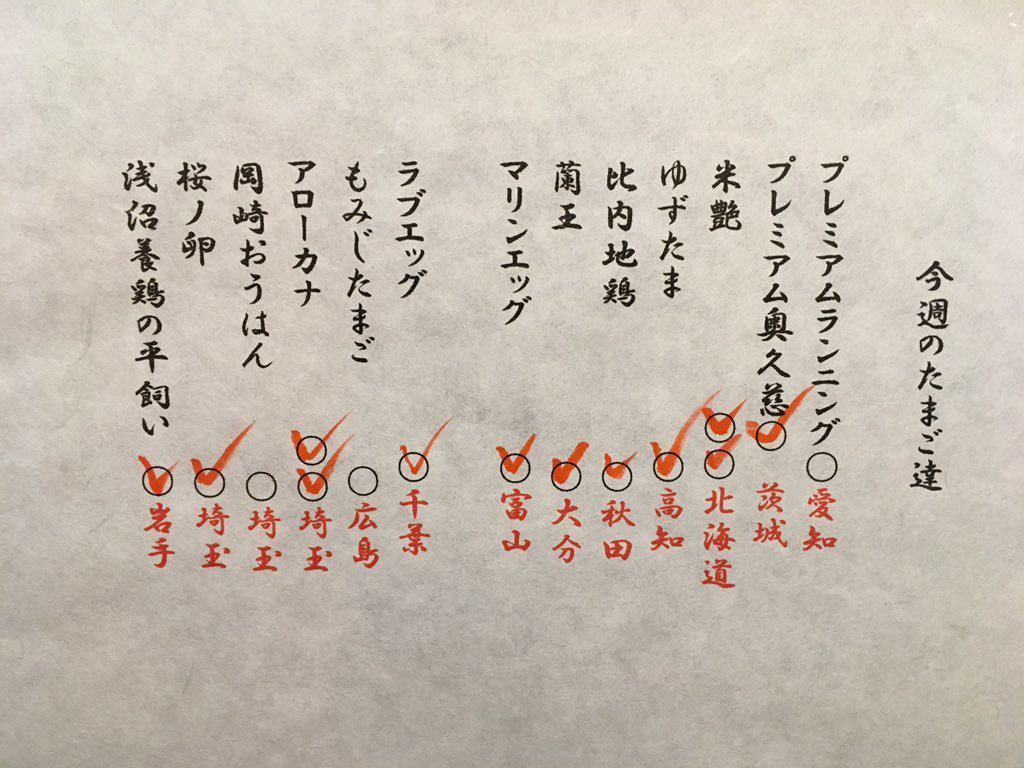 今週のたまご達
プレミアムランニング 愛知
プレミアム奥久慈 茨城
米艶 北海道
ゆずたま 高知
比内地鶏 秋田
蘭王 大分
マリンエッグ 富山
ラブエッグ 千葉
もみじたまご 広島
アローカナ 埼玉
岡崎おうはん 埼玉
桜ノ卵 埼玉
浅沼養鶏の平飼い 岩手